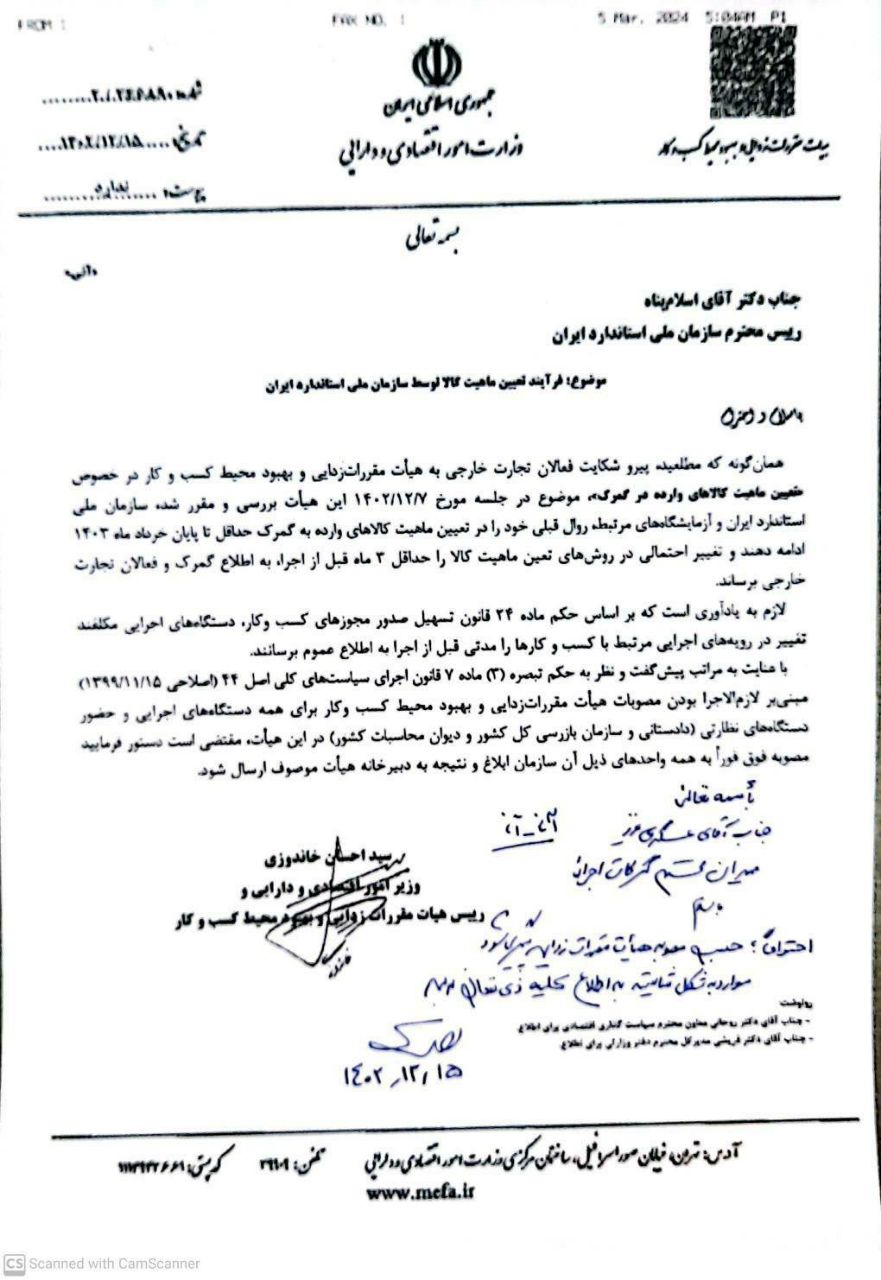 FROM :
FAX NO. :
5 Mar. 2024 5:04AM P1
جمهوری اسلامی ایران
وزارت امور اقتصادی و دارایی
هیات مقررات زدایی و بهبود محیط کسب و کار
شماره
تاریخ ۱۴۰۲/۱۲/۱۵
پیوست ندارد
بسمه تعالی
«آنی»
جناب دکتر آقای اسلام‌پناه
رییس محترم سازمان ملی استاندارد ایران
موضوع: فرآیند تعیین ماهیت کالا توسط سازمان ملی استاندارد ایران
باسلام و احترام
همان‌گونه که مطلعید، پیرو شکایت فعالان تجارت خارجی به هیأت مقررات‌زدایی و بهبود محیط کسب و کار در خصوص
«تعیین ماهیت کالاهای وارده در گمرک»، موضوع در جلسه مورخ ۱۴۰۲/۱۲/۷ این هیأت بررسی و مقرر شد، سازمان ملی
استاندارد ایران و آزمایشگاه‌های مرتبط، روال قبلی خود را در تعیین ماهیت کالاهای وارده به گمرک حداقل تا پایان خرداد ماه ۱۴۰۳
ادامه دهند و تغییر احتمالی در روش‌های تعین ماهیت کالا را حداقل ۳ ماه قبل از اجرا، به اطلاع گمرک و فعالان تجارت
خارجی برساند.
لازم به یادآوری است که بر اساس حکم ماده ۲۴ قانون تسهیل صدور مجوزهای کسب وکار، دستگاه‌های اجرایی مکلفند
تغییر در رویه‌های اجرایی مرتبط با کسب و کارها را مدتی قبل از اجرا به اطلاع عموم برسانند.
با عنایت به مراتب پیش‌گفت و نظر به حکم تبصره (۳) ماده ۷ قانون اجرای سیاست‌های کلی اصل ۴۴ (اصلاحی ۱۳۹۹/۱۱/۱۵)
مبنی‌بر لازم‌الاجرا بودن مصوبات هیأت مقررات‌زدایی و بهبود محیط کسب وکار برای همه دستگاه‌های اجرایی و حضور
دستگاه‌های نظارتی (دادستانی و سازمان بازرسی کل کشور و دیوان محاسبات کشور) در این هیأت، مقتضی است دستور فرمایید
مصوبه فوق فوراً به همه واحدهای ذیل آن سازمان ابلاغ و نتیجه به دبیرخانه هیأت موصوف ارسال شود.
سید احسان خاندوزی
وزیر امور اقتصادی و دارایی و
رییس هیات مقررات زدایی و بهبود محیط کسب و کار
باسمه تعالی
جناب آقای عسگری عزیز
آنی_آنی
احتراماً؛ حسب مصوبه هیأت مقررات زدایی
موارد به شکل به اطلاع کلیه ذی‌نفعان
۱۴۰۲/۱۲/۱۵
رونوشت
- جناب آقای دکتر روحانی معاون محترم سیاست گذاری اقتصادی برای اطلاع
- جناب آقای دکتر قریشی مدیرکل محترم دفتر وزارتی برای اطلاع
آدرس: تهران، خیابان صوراسرافیل، ساختمان مرکزی وزارت امور اقتصادی و دارایی تلفن: ۳۹۹۰۹ کدپستی:
www.mefa.ir
CS Scanned with CamScanner